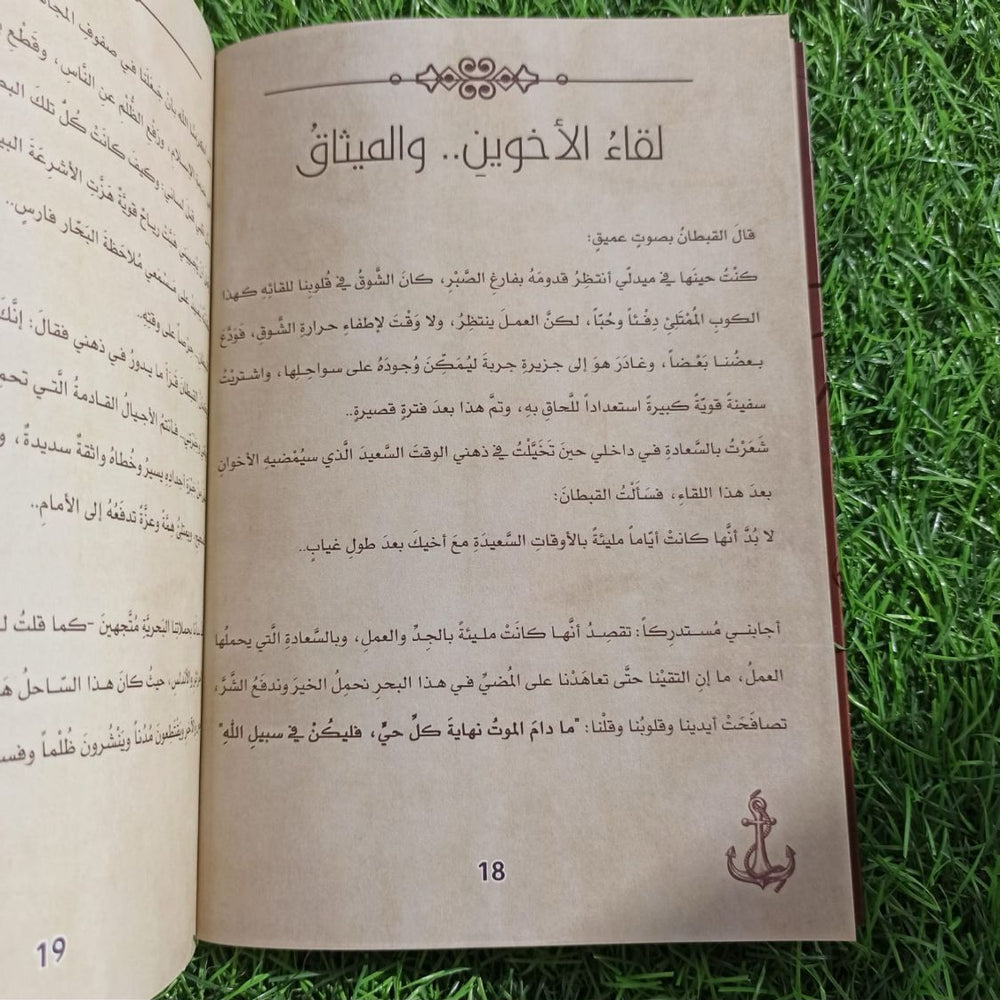 لقاءُ الأخوينِ.. والميثاقُ
قالَ القبطانُ بصوتٍ عميقٍ:
كنْتُ حينَها في ميدلّي أنتظِرُ قدومَهُ بفارغِ الصَّبْرِ، كانَ الشَّوقُ في قُلوبِنا للقائِهِ كهذا
الكوبِ المُمْتَلِئِ دِفْئاً وحُبّاً، لكنَّ العملَ ينتظِرُ، ولا وَقْتَ لإطفاءِ حرارةِ الشَّوقِ، فَوَدَّعَ
بعضُنا بَعْضاً، وغادَرَ هوَ إلى جزيرةِ جربةَ ليُمَكِّنَ وُجودَهُ على سواحلِها، واشتريْتُ
سفينةً قويّةً كبيرةً استعداداً للَّحاقِ بهِ، وتمَّ هذا بعدَ فترةٍ قصيرةٍ..
شَعَرْتُ بالسَّعادةِ في داخلي حينَ تَخَيَّلْتُ في ذهني الوقتَ السَّعيدَ الَّذي سيُمْضيهِ الأخوانِ
بعدَ هذا اللقاءِ، فسَألْتُ القبطانَ:
لا بُدَّ أنَّها كانتْ أيّاماً مليئةً بالأوقاتِ السَّعيدَةِ معَ أخيكَ بعدَ طولِ غيابٍ..
أجابني مُستدرِكاً: تقصِدُ أنَّها كانَتْ مليئةً بالجِدِّ والعملِ، وبالسَّعادةِ الَّتي يحملُها
العملُ، ما إنِ التقيْنا حتَّى تعاهَدْنا على المُضيِّ في هذا البحرِ نحمِلُ الخيرَ وندفَعُ الشَّرَّ،
تصافَحَتْ أيدينا وقلوبُنا وقلْنا: "ما دامَ الموتُ نهايةَ كلِّ حيٍّ، فليكُنْ في سبيلِ اللهِ"
18
الإسلامِ، ورَفْعِ الظُّلْمِ عنِ النَّاسِ، وقَطْعِ
وكيفَ كانَتْ كُلُّ تلكَ
هَبَّتْ رياحٌ قويَّةٌ هَزَّتِ الأشرِعَةَ
مُلاحَظةَ البَحّارِ فارسٍ..
على وقتِهِ.
ما يدورُ في ذهني فقالَ: إنَّكَ
الأجيالُ القادمةُ الَّتي
يسيرُ وخُطاهُ واثقةٌ سديدةٌ،
همَّةً وعزَّةً تدفَعُهُ إلى الأمامِ..
البَحريَّةِ مُتَّجهينَ -كما قلتُ
حيثُ كانَ هذا السّاحلُ
مُدُناً ويَنْشُرونَ ظُلْماً
19